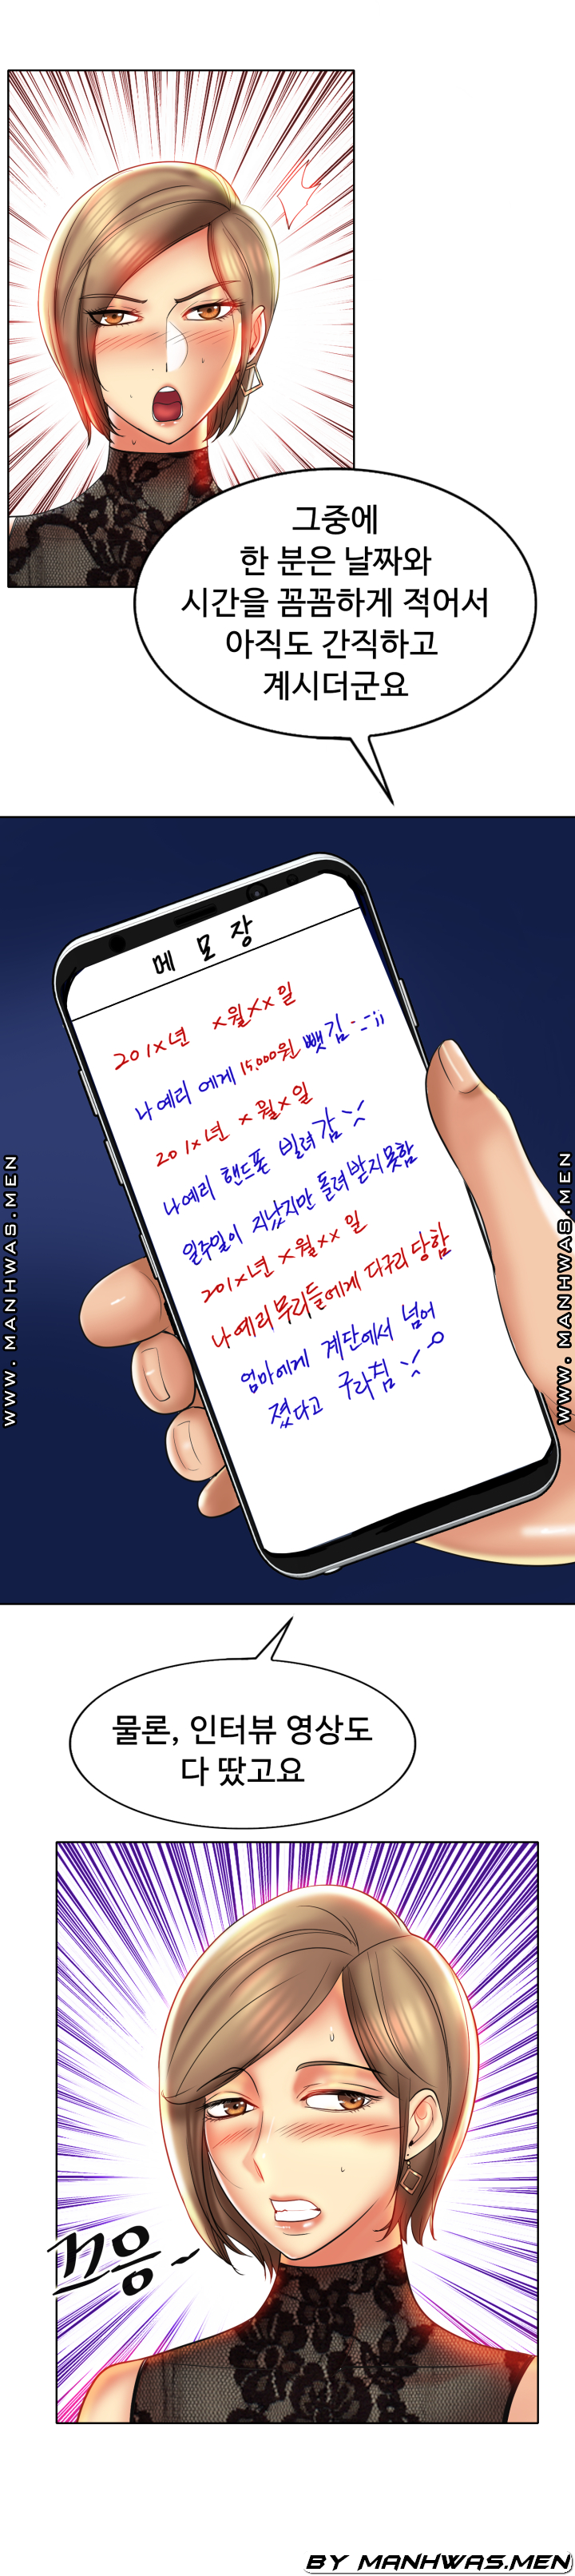 그중에
한 분은 날짜와
시간을 꼼꼼하게 적어서
아직도 간직하고
계시더군요
메모장
201x년 x월xx일
나예리 에게 15,000원 뺏김 -_-;;
201x년 x월x일
나예리 핸드폰 빌려감
일주일이 지났지만 돌려받지못함
201x년 x월xx일
나예리무리들에게 다구리당함
엄마에게 계단에서 넘어
졌다고 구라침
WWW.MANHWAS.MEN
WWW.MANHWAS.MEN
물론, 인터뷰 영상도
다 땄고요
끄응~
BY MANHWAS.MEN